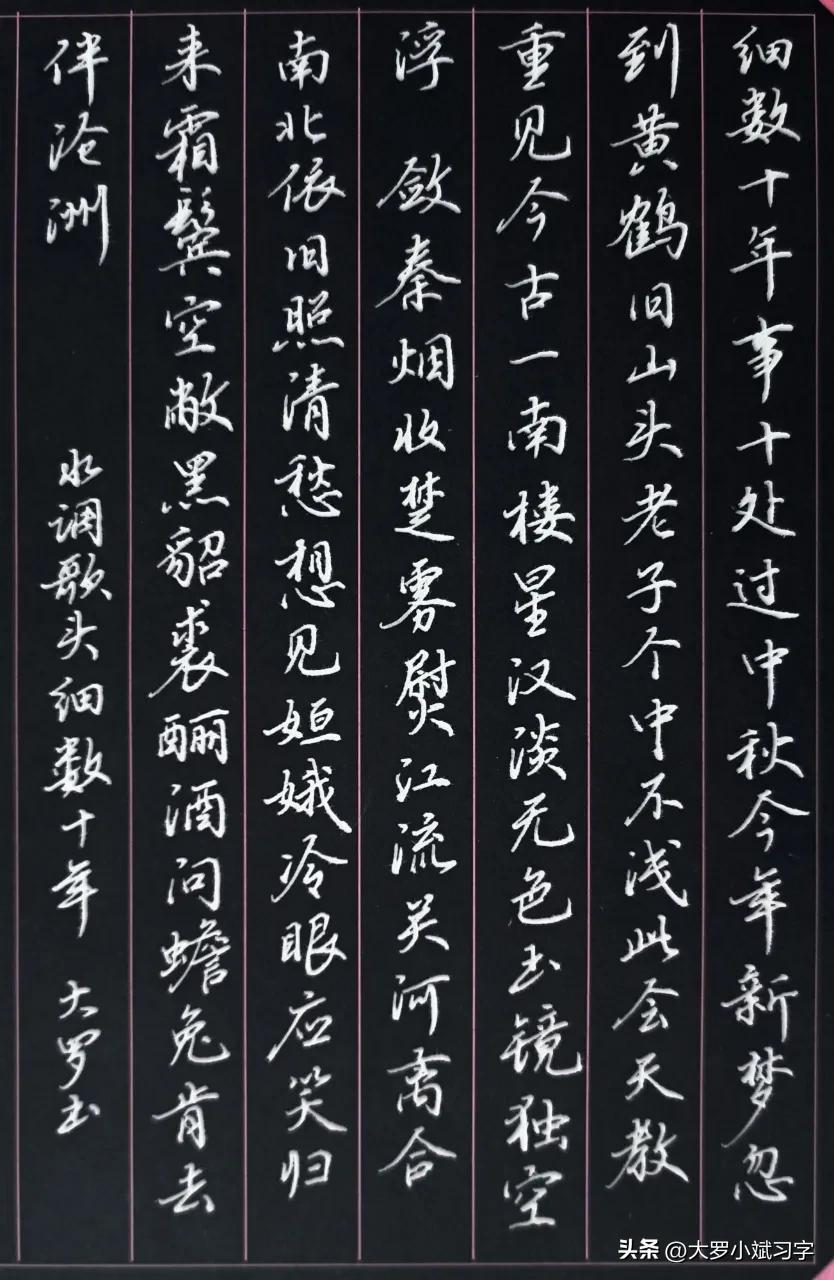 细数十年事十处过中秋今年新梦忽
到黄鹤旧山头老子个中不浅此会天教
重见今古一南楼星汉淡无色玉镜独空
浮 敛秦烟收楚雾熨江流关河离合
南北依旧照清愁想见姮娥冷眼应笑归
来霜鬓空敝黑貂裘酾酒问蟾兔肯去
伴沧洲
水调歌头细数十年 大罗书
头条 @大罗小斌习字